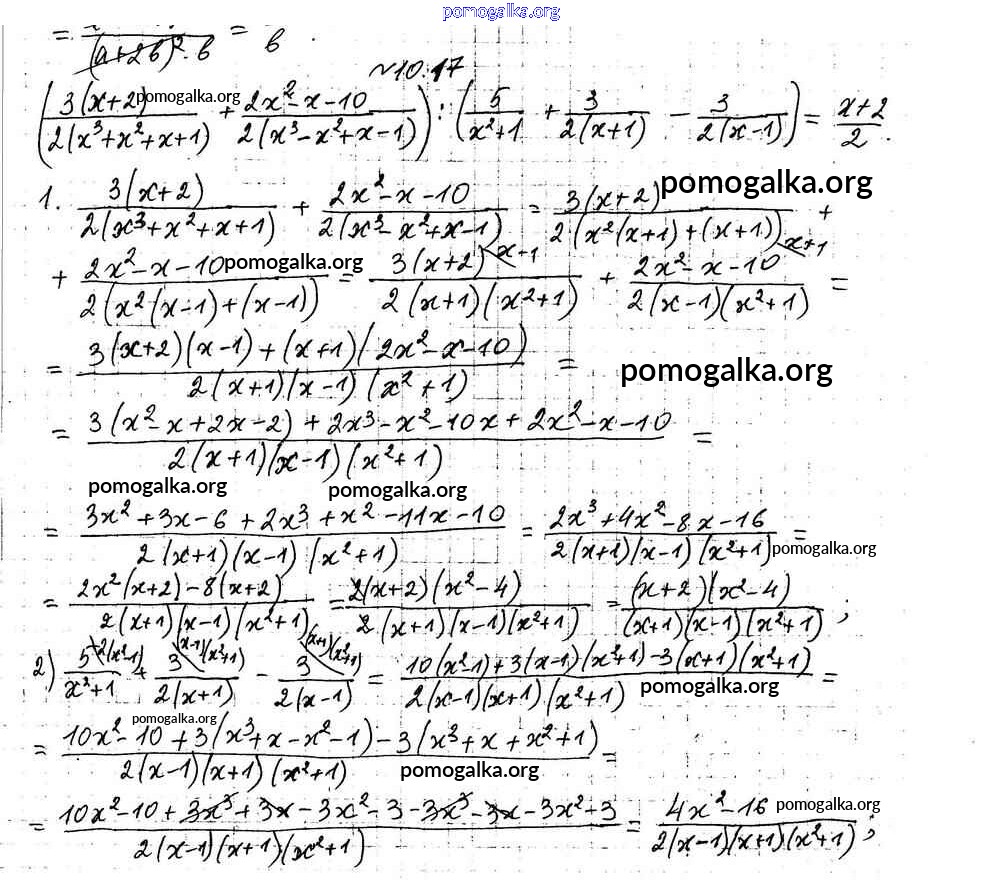 pomogalka.org
= / (a+2b)²·b = b .
№10.17
(3(x+2) / 2(x³+x²+x+1) + 2x²-x-10 / 2(x³-x²+x-1)) : (5 / x²+1 + 3 / 2(x+1) - 3 / 2(x-1)) = x+2 / 2 .
pomogalka.org
1. 3(x+2) / 2(x³+x²+x+1) + 2x²-x-10 / 2(x³-x²+x-1) = 3(x+2) / 2(x²(x+1)+(x+1)) +
pomogalka.org
+ 2x²-x-10 / 2(x²(x-1)+(x-1)) = 3(x+2) \x-1 / 2(x+1)(x²+1) + 2x²-x-10 \x+1 / 2(x-1)(x²+1) =
pomogalka.org
= 3(x+2)(x-1)+(x+1)(2x²-x-10) / 2(x+1)(x-1)(x²+1) =
pomogalka.org
= 3(x²-x+2x-2)+2x³-x²-10x+2x²-x-10 / 2(x+1)(x-1)(x²+1) =
pomogalka.org
pomogalka.org
= 3x²+3x-6+2x³+x²-11x-10 / 2(x+1)(x-1)(x²+1) = 2x³+4x²-8x-16 / 2(x+1)(x-1)(x²+1) =
pomogalka.org
= 2x²(x+2)-8(x+2) / 2(x+1)(x-1)(x²+1) = 2(x+2)(x²-4) / 2(x+1)(x-1)(x²+1) = (x+2)(x²-4) / (x+1)(x-1)(x²+1) ;
2) 5 \2(x²-1) / x²+1 + 3 \(x-1)(x²+1) / 2(x+1) - 3 \(x+1)(x²+1) / 2(x-1) = 10(x²-1)+3(x-1)(x²+1)-3(x+1)(x²+1) / 2(x-1)(x+1)(x²+1) =
pomogalka.org
pomogalka.org
= 10x²-10+3(x³+x-x²-1)-3(x³+x+x²+1) / 2(x-1)(x+1)(x²+1) =
pomogalka.org
= 10x²-10+3x³+3x-3x²-3-3x³-3x-3x²+3 / 2(x-1)(x+1)(x²+1) = 4x²-16 / 2(x-1)(x+1)(x²+1) ;
pomogalka.org